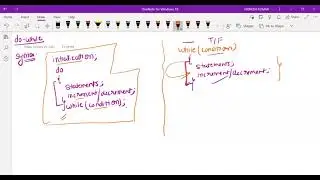 OneNote for Windows 10
do-while
Syntax
initialization;
do
{
statements;
increment/decrement;
} while (condition);
T/F
while (condition)
{
statements;
increment/decrement;
}